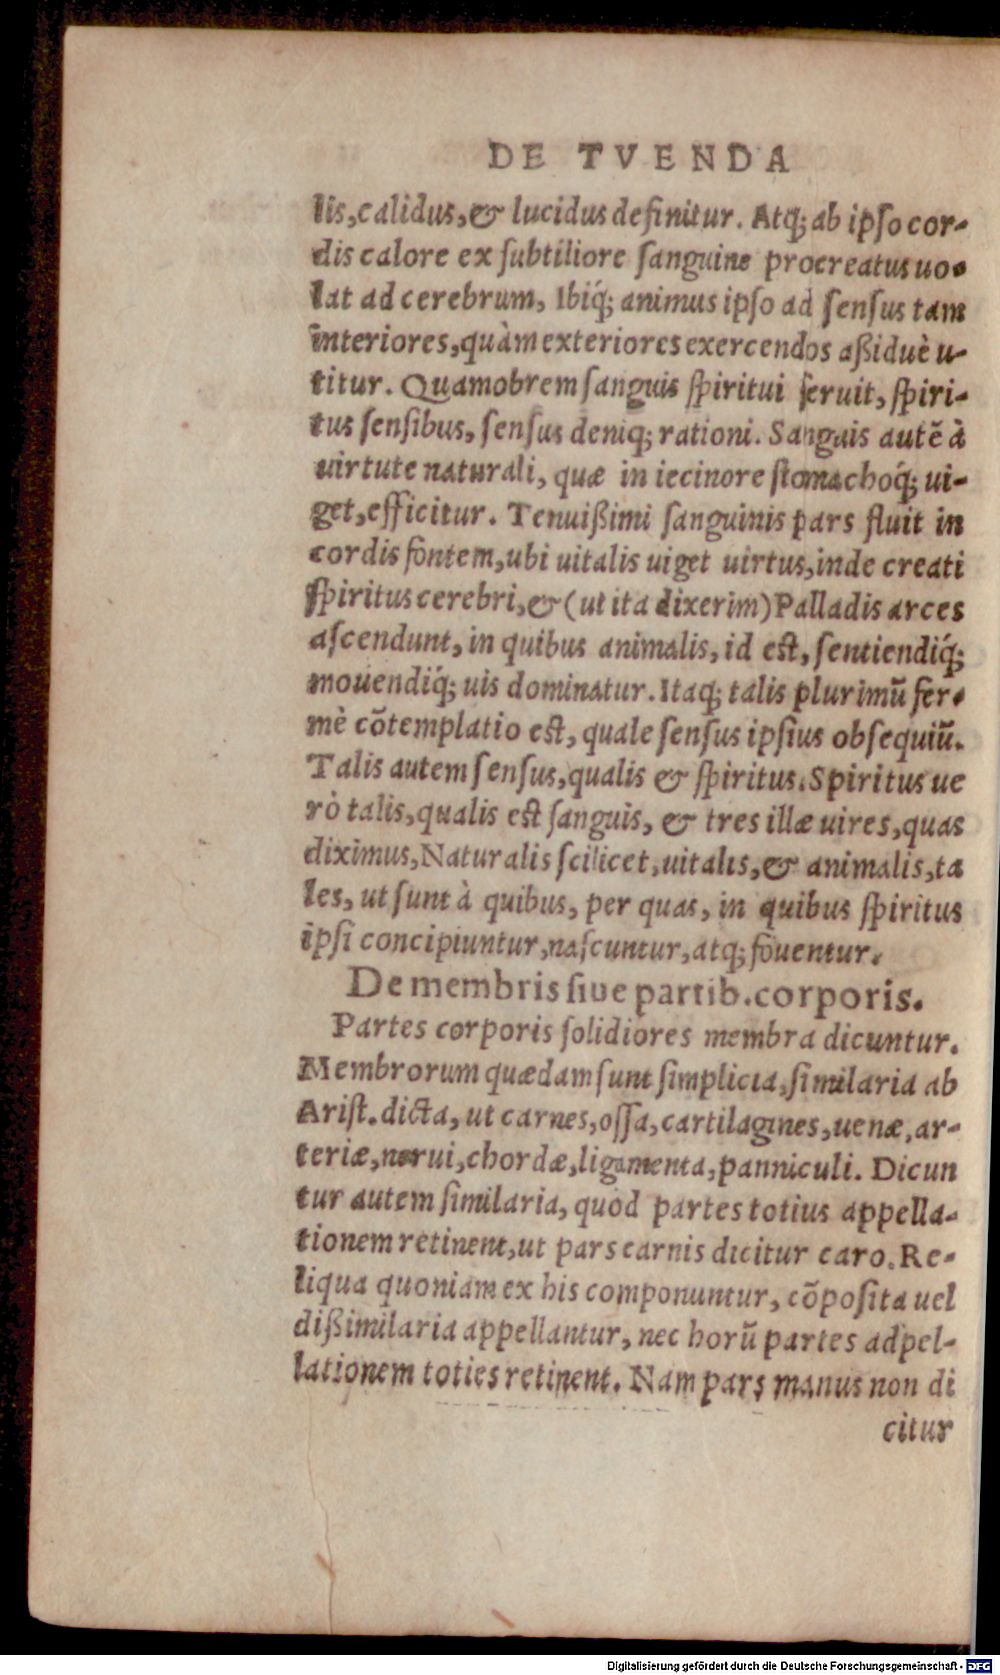 DE TVENDA
lis, calidus, & lucidus definitur. Atq; ab ipso cor-
dis calore ex subtiliore sanguine procreatus uo-
lat ad cerebrum, Ibiq́; animus ipso ad sensus tam
interiores, quàm exteriores exercendos aßiduè u-
titur. Quamobrem sanguis spiritui seruit, spiri-
tus sensibus, sensus deniq; rationi. Sanguis autē à
uirtute naturali, quæ in iecinore stomachoq́; ui-
get, efficitur. Tenuißimi sanguinis pars fluit in
cordis fontem, ubi uitalis uiget uirtus, inde creati
spiritus cerebri, & (ut ita dixerim) Palladis arces
ascendunt, in quibus animalis, id est, sentiendiq́;
mouendiq́; uis dominatur. Itaq; talis plurimū fer-
mè cōtemplatio est, quale sensus ipsius obsequiū.
Talis autem sensus, qualis & spiritus. Spiritus ue
rò talis, qualis est sanguis, & tres illæ uires, quas
diximus, Naturalis scilicet, uitalis, & animalis, ta
les, ut sunt à quibus, per quas, in quibus spiritus
ipsi concipiuntur, nascuntur, atq; fouentur.
De membris siue partib. corporis.
Partes corporis solidiores membra dicuntur.
Membrorum quædam sunt simplicia, similaria ab
Arist. dicta, ut carnes, ossa, cartilagines, uenæ, ar-
teriæ, nerui, chordæ, ligamenta, panniculi. Dicun
tur autem similaria, quòd partes totius appella-
tionem retinent, ut pars carnis dicitur caro. Re-
liqua quoniam ex his componuntur, cōposita uel
dißimilaria appellantur, nec horū partes adpel-
lationem toties retinent. Nam pars manus non di
citur
Digitalisierung gefördert durch die Deutsche Forschungsgemeinschaft - DFG